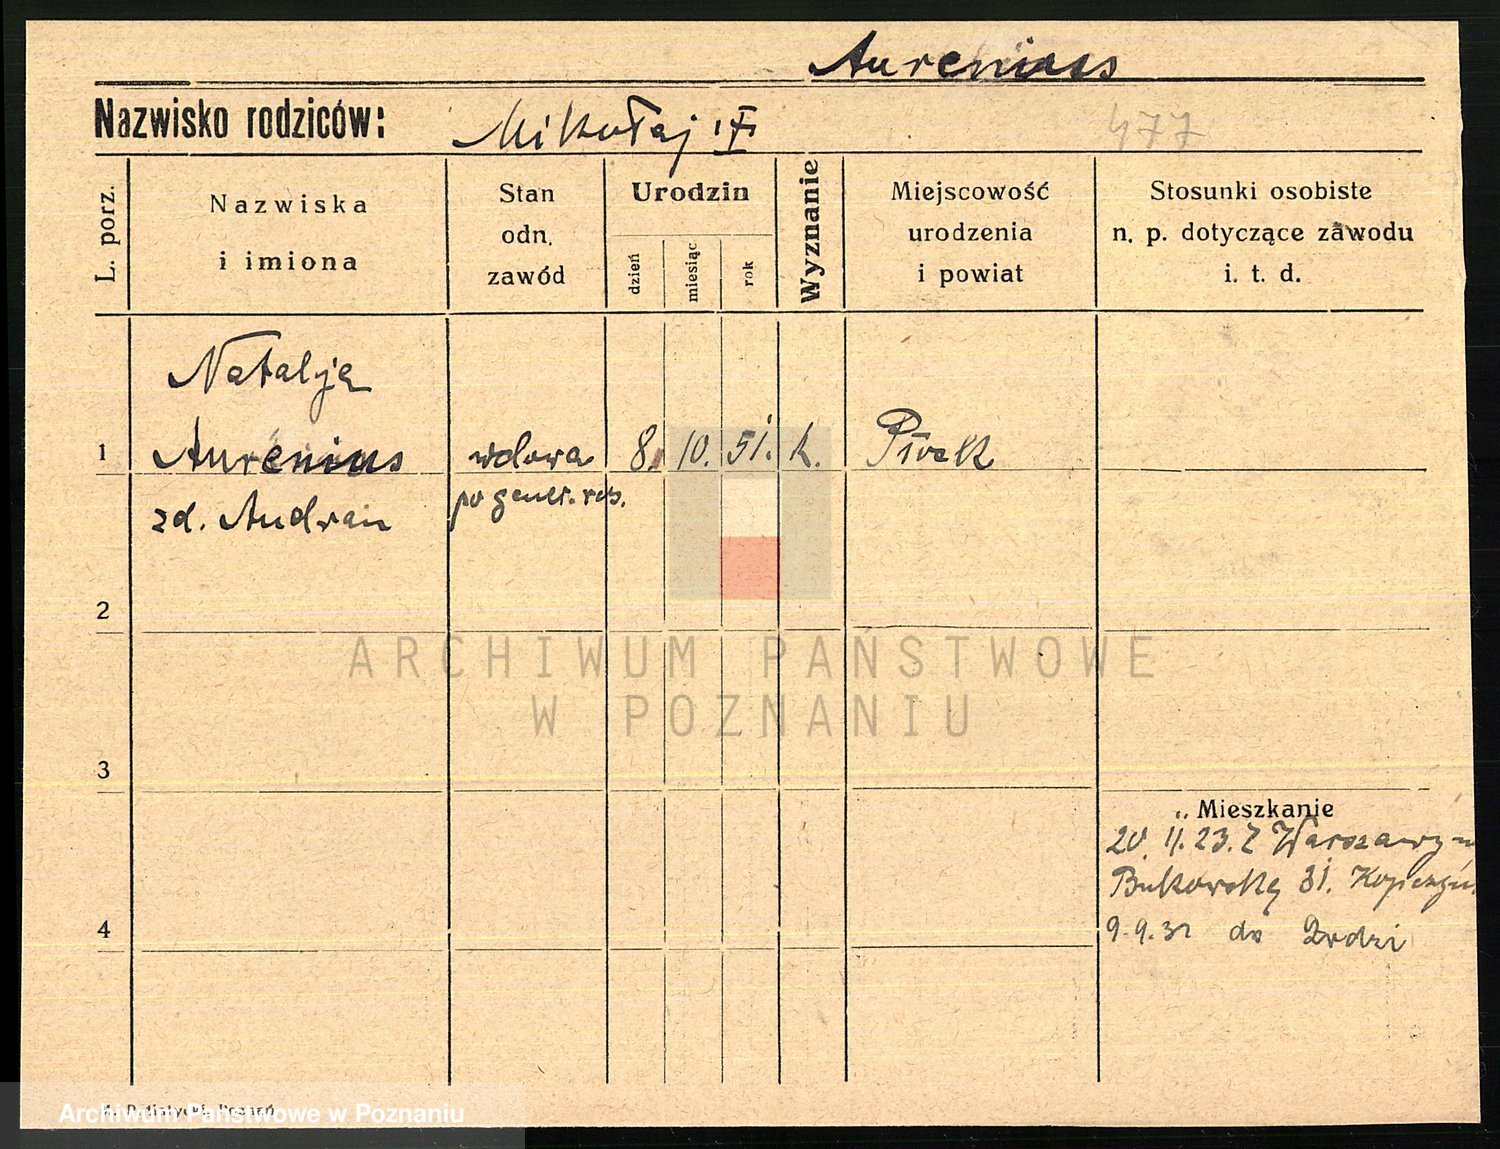 Aurenius
Nazwisko rodziców: Mikołaj i F
477
L. porz.
Nazwiska
i imiona
Stan
odn.
zawód
Urodzin
dzień
miesiąc
rok
Wyznanie
Miejscowość
urodzenia
i powiat
Stosunki osobiste
n. p. dotyczące zawodu
i. t. d.
Natalja
1 Aurenius wdowa 8. 10. 51. k. Płock
zd. Audran po gener. ros.
2
ARCHIWUM PAŃSTWOWE
W POZNANIU
3
Mieszkanie
20. 11. 23. Z Warszawy
Bukowska 31.
4 9.9.31 do Łodzi
Archiwum Państwowe w Poznaniu